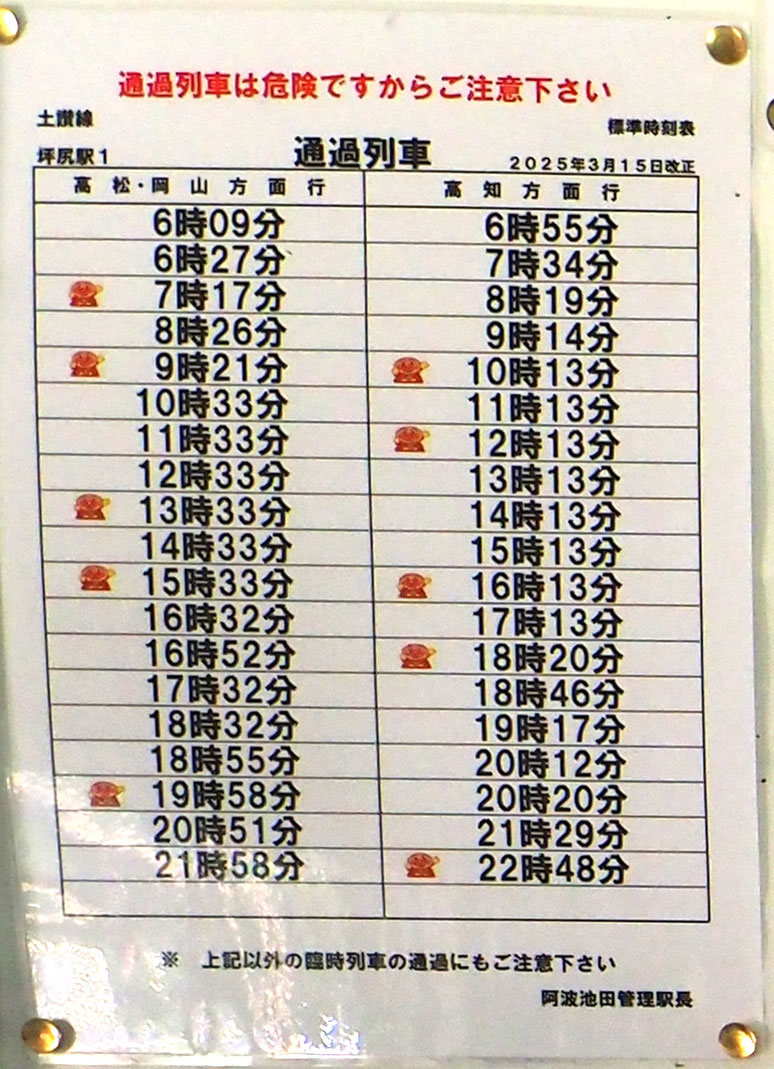 通過列車は危険ですからご注意下さい
土讃線
標準時刻表
坪尻駅1 通過列車 2025年3月15日改正
高松・岡山方面行 高知方面行
6時09分 6時55分
6時27分 7時34分
7時17分 8時19分
8時26分 9時14分
9時21分 10時13分
10時33分 11時13分
11時33分 12時13分
12時33分 13時13分
13時33分 14時13分
14時33分 15時13分
15時33分 16時13分
16時32分 17時13分
16時52分 18時20分
17時32分 18時46分
18時32分 19時17分
18時55分 20時12分
19時58分 20時20分
20時51分 21時29分
21時58分 22時48分
※ 上記以外の臨時列車の通過にもご注意下さい
阿波池田管理駅長